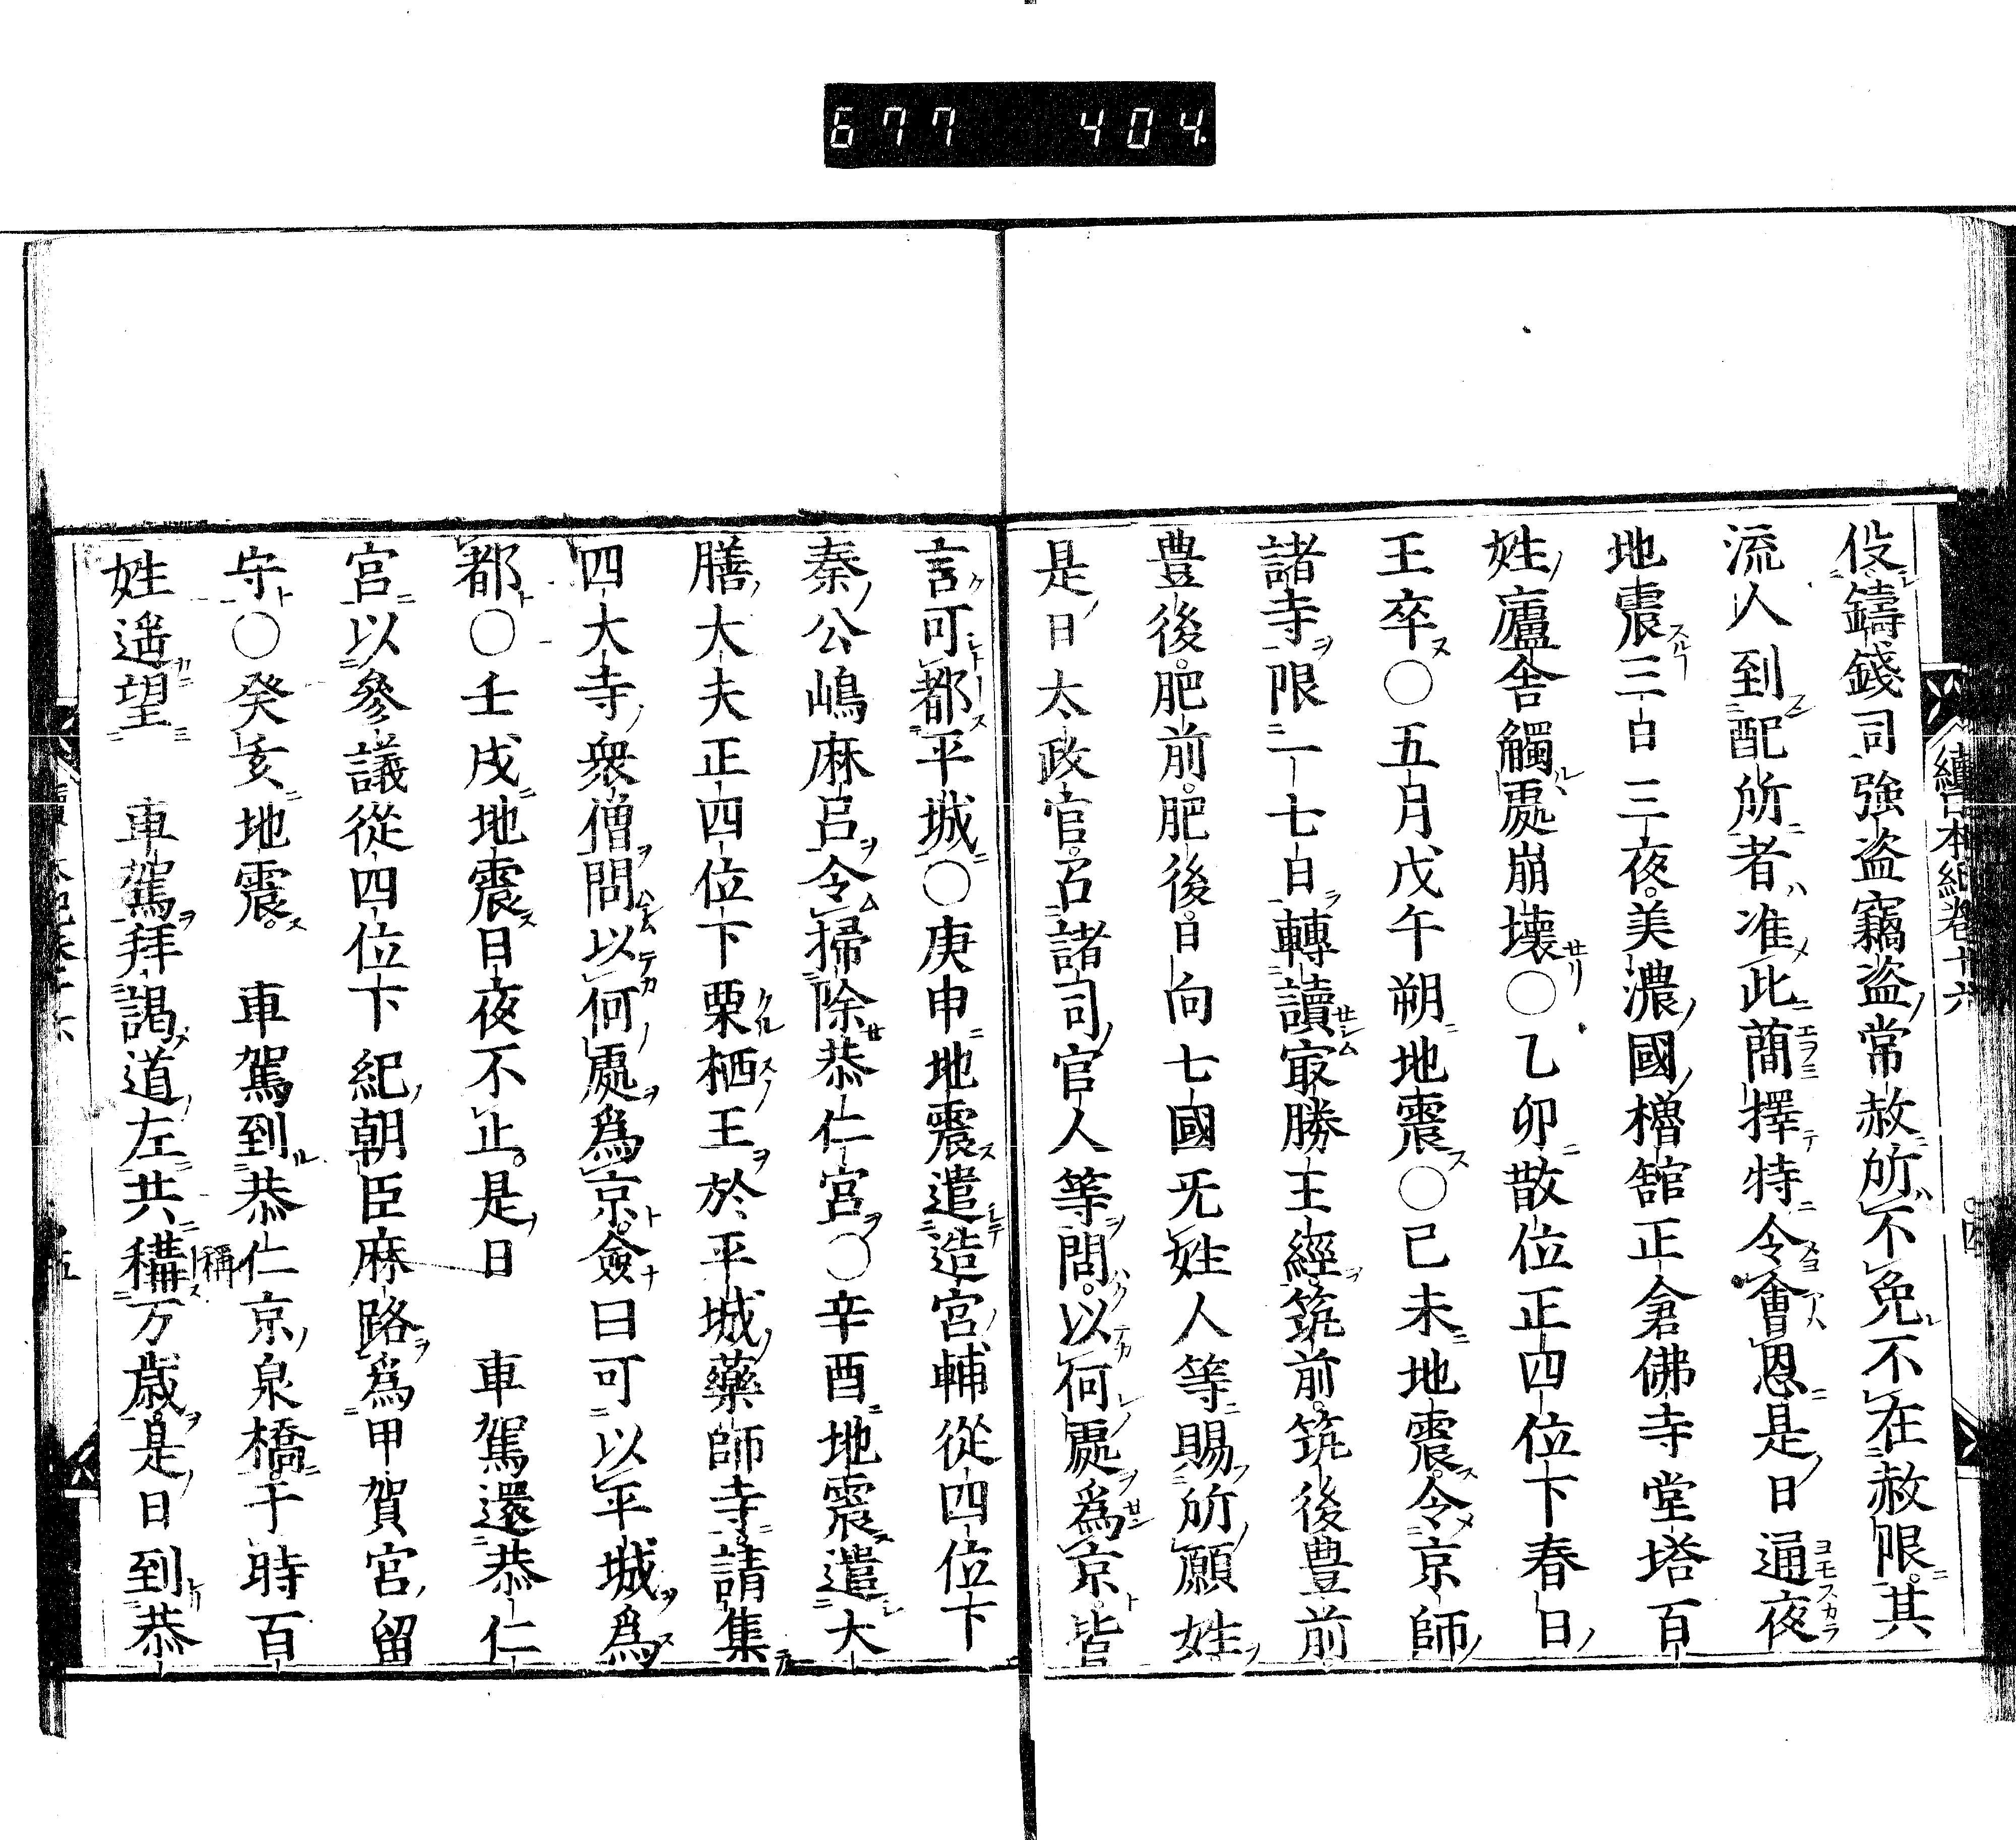 677 404
續日本紀卷十六
四
役鑄錢司強盗竊盗常赦所不免不在赦限其
流人到配所者准此簡擇特令會恩是日通夜
地震三日三夜美濃國櫓舘正倉佛寺堂塔百
姓廬舎觸處崩壊○乙卯散位正四位下春日
王卒○五月戊午朔地震○己未地震令京師
諸寺限二七日轉讀㝡勝王經筑前筑後豊前
豊後肥前肥後日向七國无姓人等賜所願姓
是日太政官召諸司官人等問以何處爲京皆
言可都平城○庚申地震遣造宮輔從四位下
秦公嶋麻呂令掃除恭仁宮○辛酉地震遣大
膳大夫正四位下栗栖王於平城藥師寺請集
四大寺衆僧問以何處爲京僉曰可以平城爲
都○壬戌地震日夜不止是日 車駕還恭仁
宮以參議從四位下紀朝臣麻路爲甲賀宮留
守○癸亥地震 車駕到恭仁京泉橋于時百
姓遥望 車駕拜謁道左共稱万歳是日到恭
稱
五